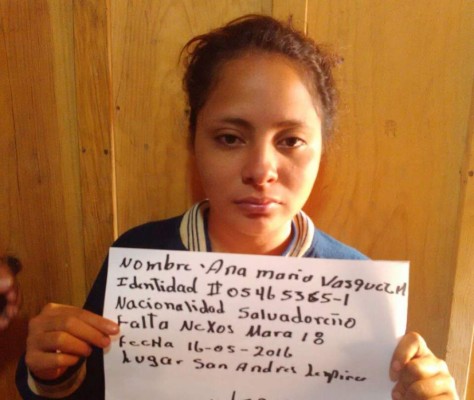 Nombre . Ana maria Vasquez M
Identidad # 05465365-1
Nacionalidad Salvadoreño
Falta Nexos Mara 18
Fecha 16-05-2016
Lugar San Andres